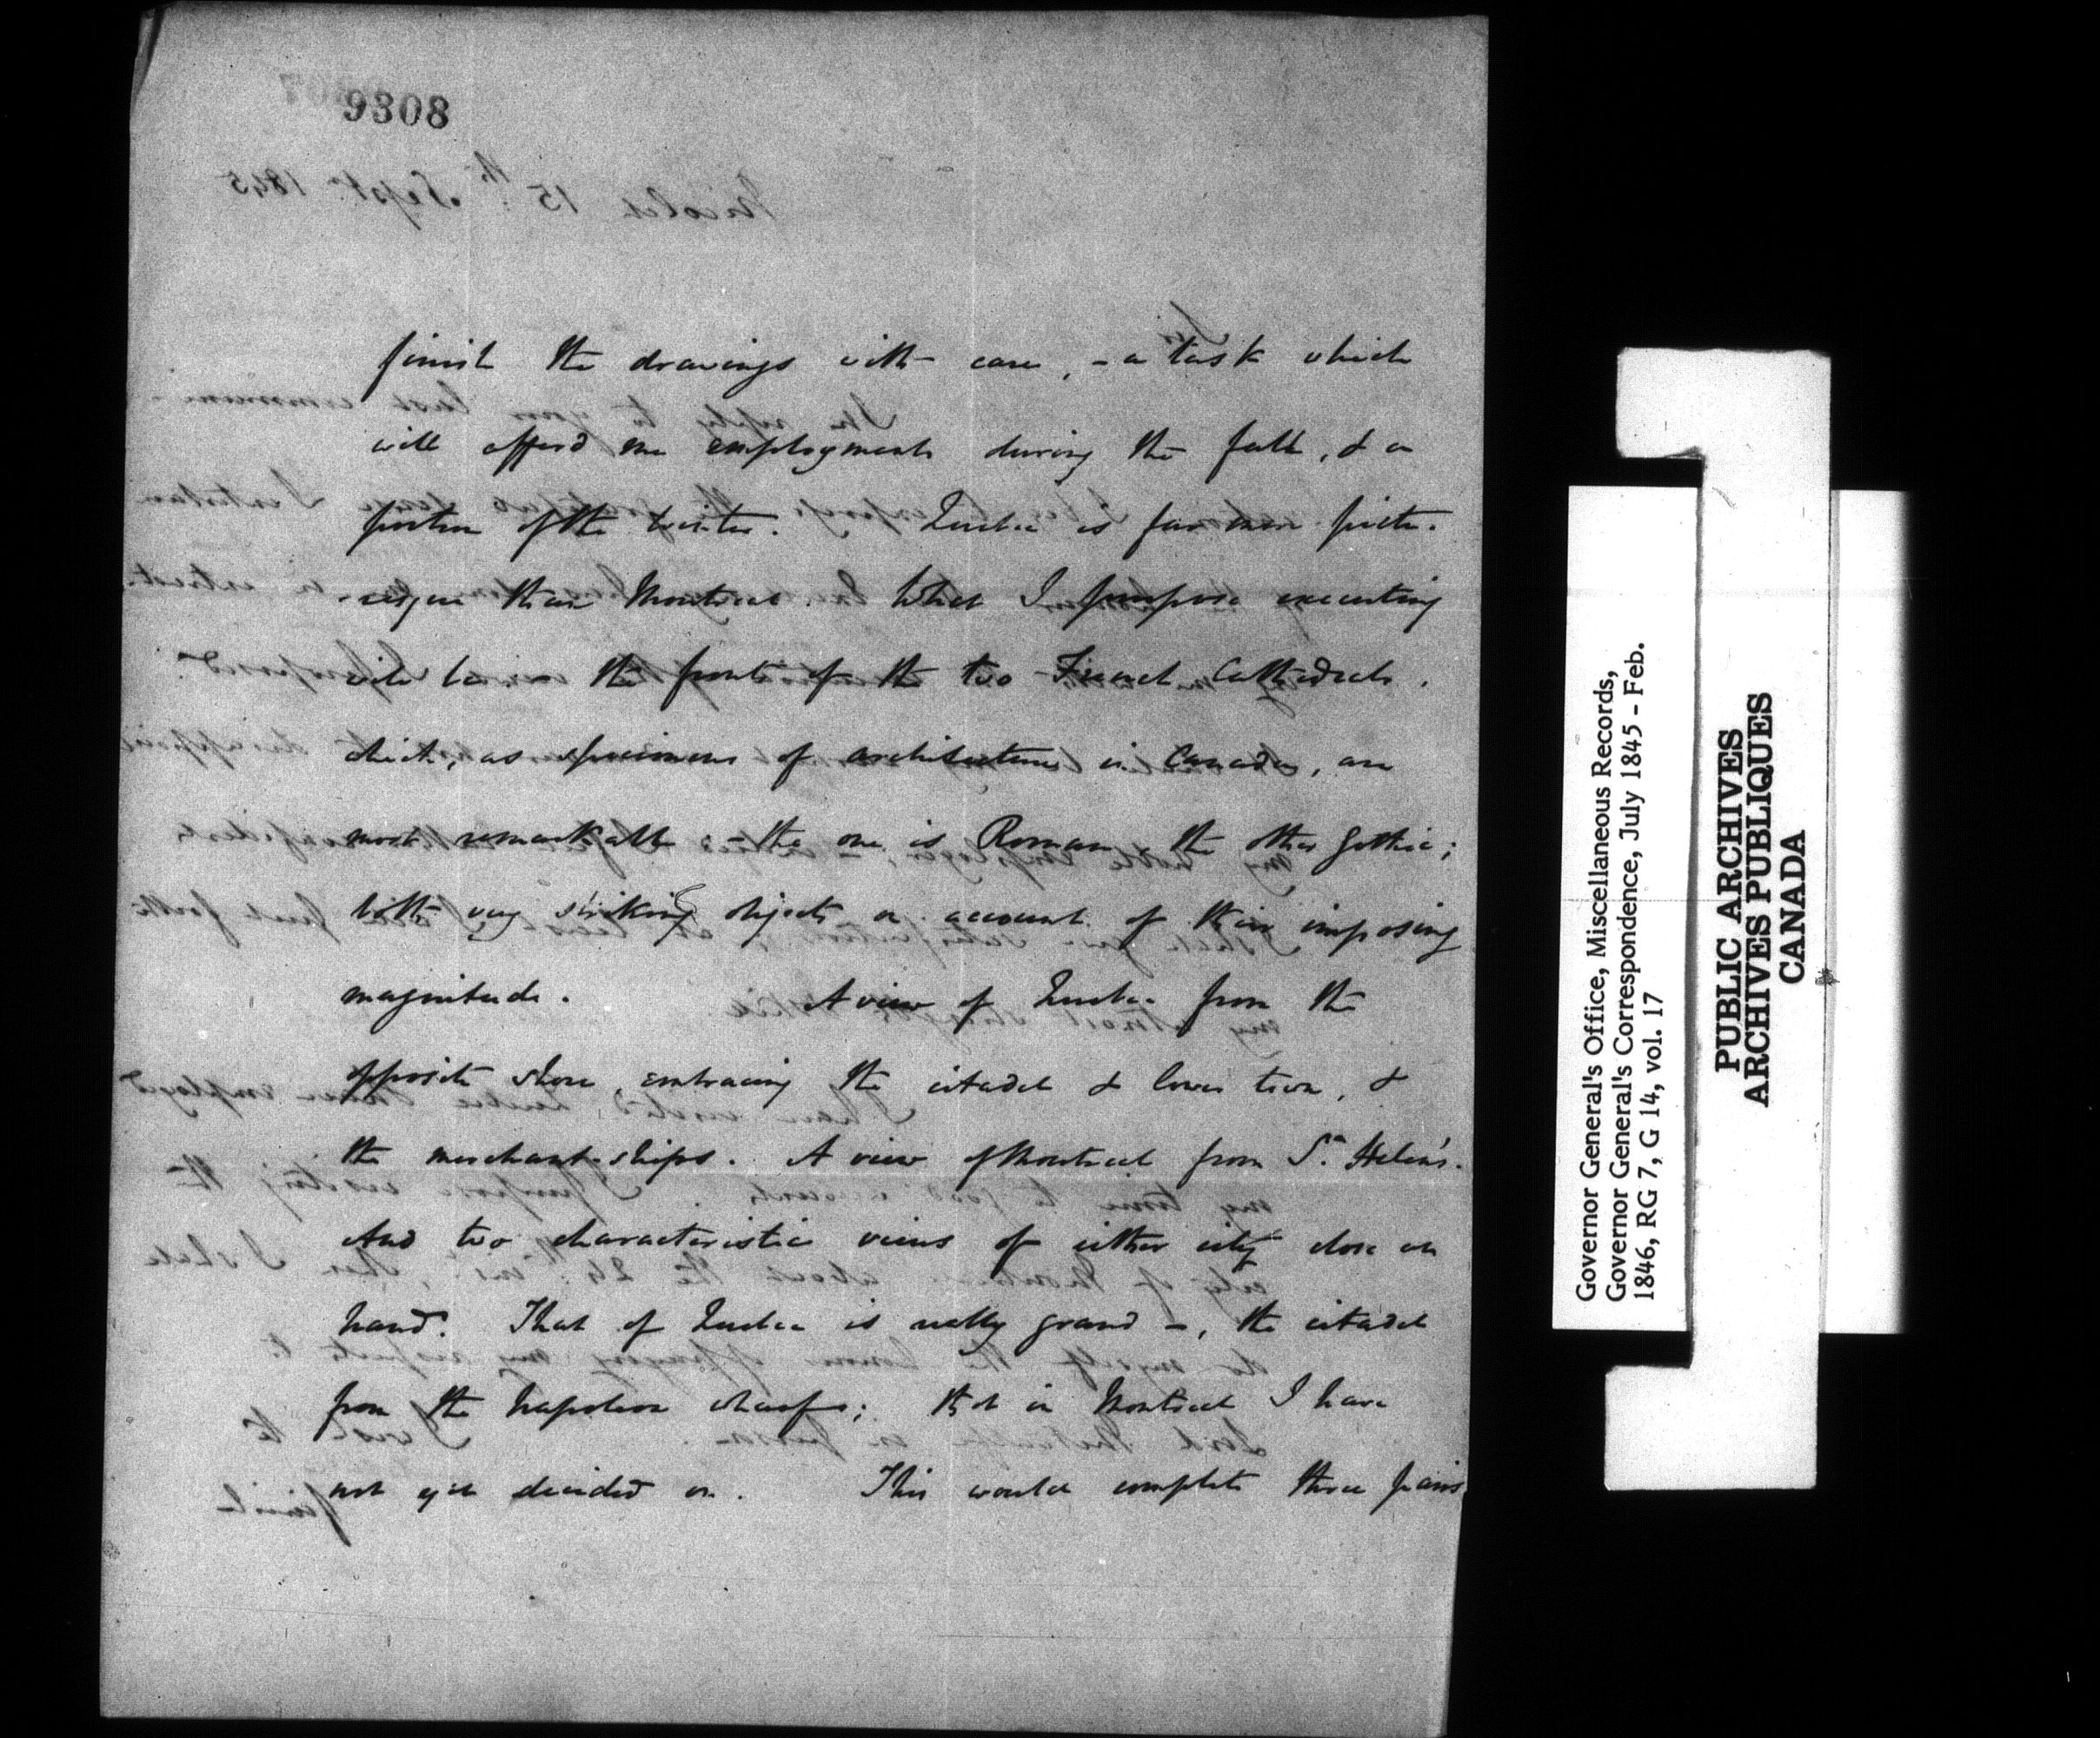 9308
finish the drawings with care, - a task which
will afford me employment during the fall, & a
portion of the winter. Quebec is far more pictu-
-resque than Montreal. What I propose executing
will be - the fronts of the two French Cathedrals,
which, as specimens of architecture in Canada, are
most remarkable; - the one is Roman, the other Gothic;
both very striking objects on account of their imposing
magnitude. A view of Quebec from the
opposite shore, embracing the citadel & lower town, &
the merchant-ships. A view of Montreal from St. Helen's.
And two characteristic views of either city close on
hand. That of Quebec is really grand -, the citadel
from the Napoleon wharfs; that in Montreal I have
not yet decided on. This would complete three pairs
Governor General's Office, Miscellaneous Records,
Governor General's Correspondence, July 1845 - Feb.
1846, RG 7, G 14, vol. 17
PUBLIC ARCHIVES
ARCHIVES PUBLIQUES
CANADA